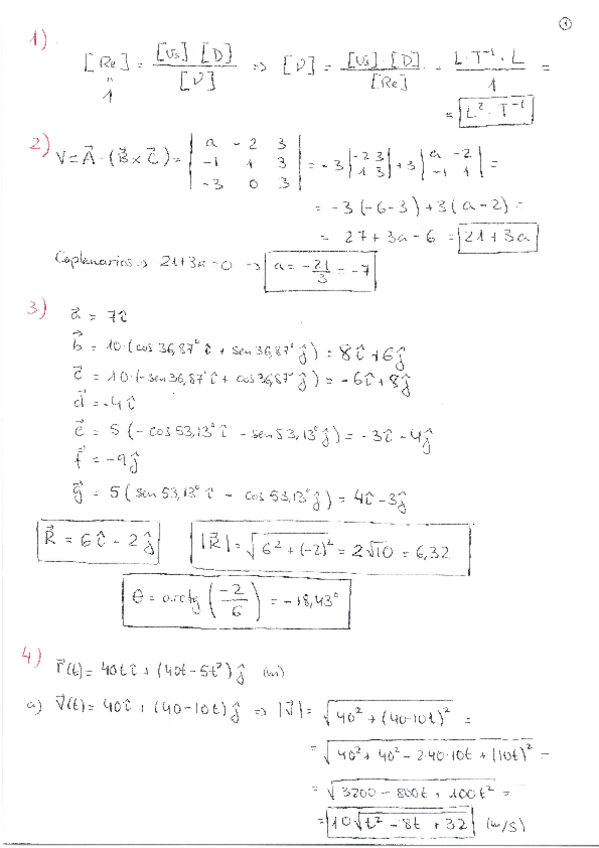 1
1) [Re] = [Vs] [D] / [ν] => [ν] = [Vs]·[D] / [Re] = L·T⁻¹·L / 1 =
" 1
= L²·T⁻¹
2) V = A⃗·(B⃗ × C⃗) = | a -2 3 | = -3 | -2 3 | + 3 | a -2 | =
| -1 1 3 | | 1 3 | | -1 1 |
| -3 0 3 |
= -3(-6-3) + 3(a-2) =
= 27 + 3a - 6 = 21 + 3a
Coplanarios => 21+3a=0 => a = -21/3 = -7
3) a⃗ = 7î
b⃗ = 10·(cos 36,87° î + sen 36,87° ĵ) = 8î + 6ĵ
c⃗ = 10·(-sen 36,87° î + cos 36,87° ĵ) = -6î + 8ĵ
d⃗ = -4î
e⃗ = 5(-cos 53,13° î - sen 53,13° ĵ) = -3î - 4ĵ
f⃗ = -9ĵ
g⃗ = 5(sen 53,13° î - cos 53,13° ĵ) = 4î - 3ĵ
R⃗ = 6î - 2ĵ |R⃗| = √(6² + (-2)²) = 2√10 = 6,32
θ = arctg (-2/6) = -18,43°
4) r⃗(t) = 40t î + (40t - 5t²) ĵ (m)
a) v⃗(t) = 40î + (40-10t) ĵ => |v⃗| = √(40² + (40-10t)²) =
= √(40² + 40² - 2·40·10t + (10t)²) =
= √(3200 - 800t + 100t²) =
= 10√(t² - 8t + 32) (m/s)